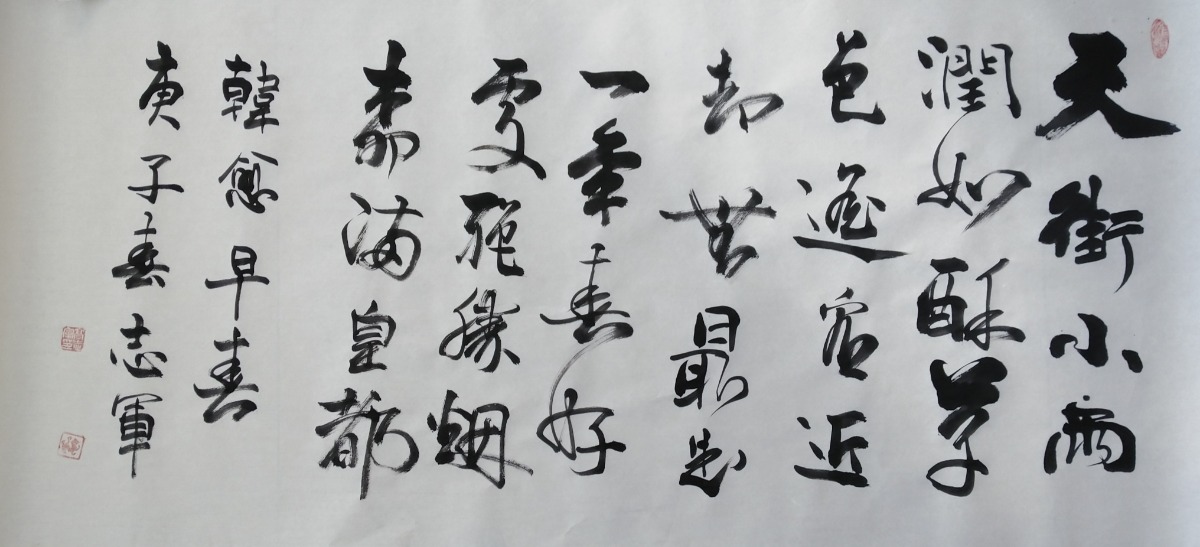 天街小雨
潤如酥草
色遙看近
却無最是
一年春好
處絕勝烟
柳滿皇都
韓愈早春
庚子春志軍